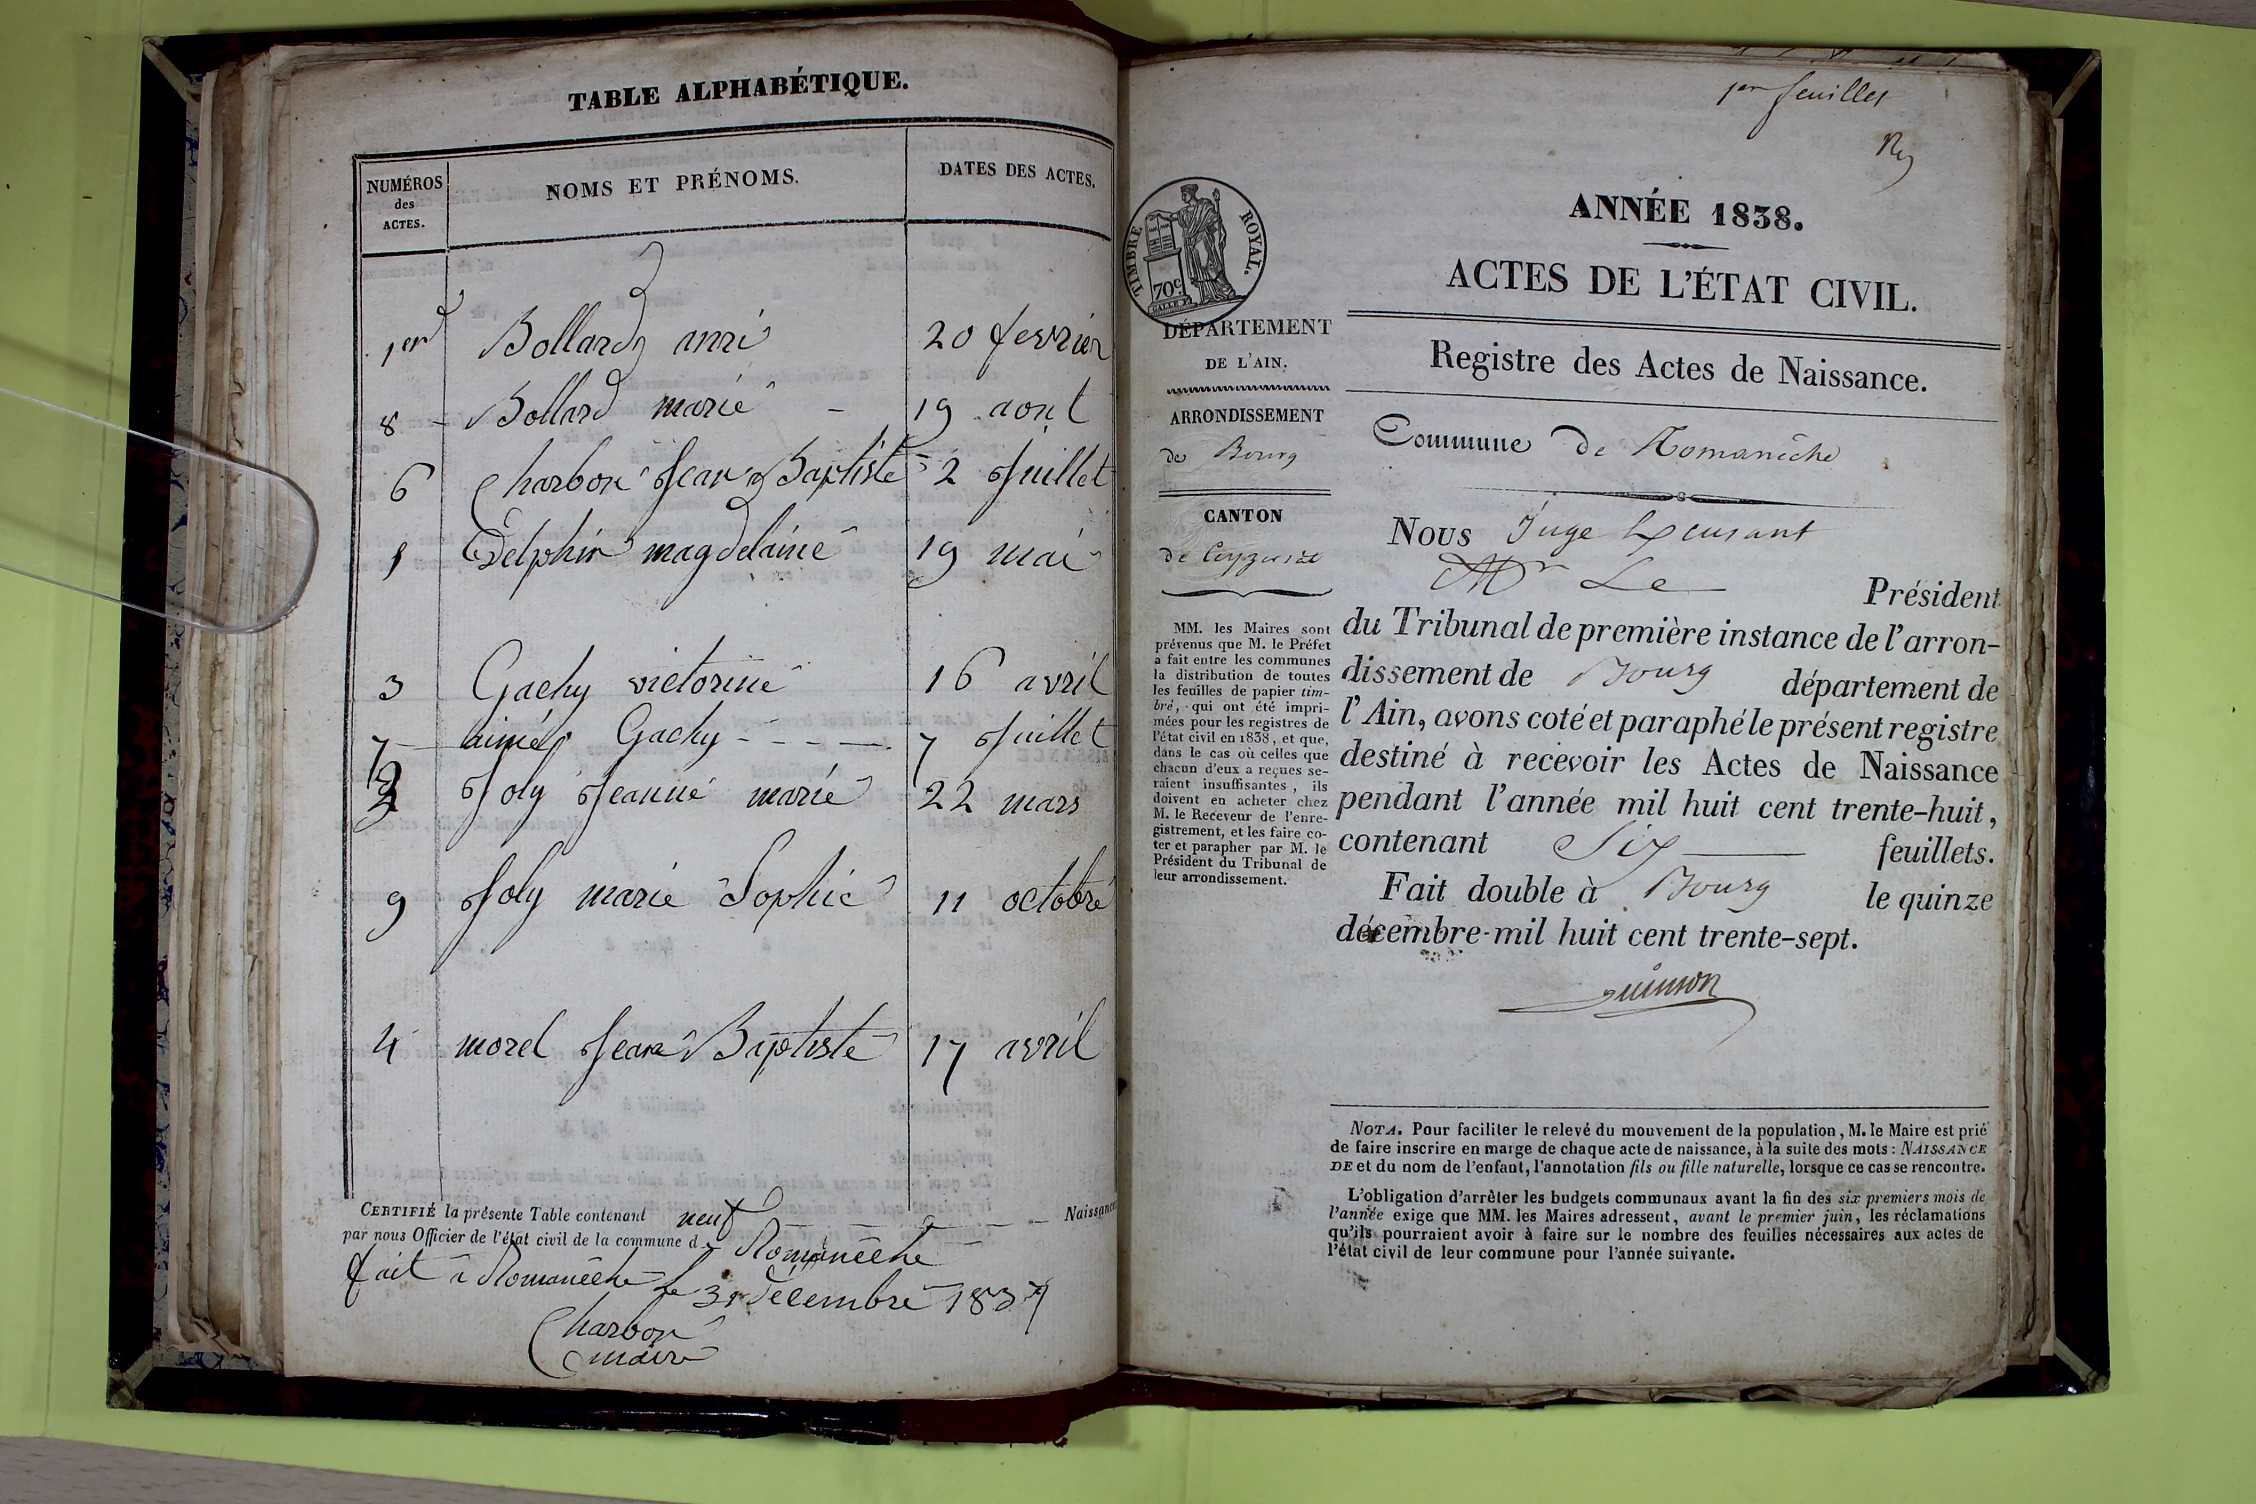 TABLE ALPHABÉTIQUE.
NUMÉROS
des
ACTES.
NOMS ET PRÉNOMS.
DATES DES ACTES.
1er Bollard anri 20 fevrier
8 Bollard marie 19 aout
6 Charbon Jean Baptiste 2 Juillet
Delphin magdelaine 19 mai
3 Gachy victorine 16 avril
7 aimé Gachy 7 Juillet
2 Joly Jeanne marie 22 mars
9 Joly marie Sophie 11 octobre
4 morel Jean Baptiste 17 avril
CERTIFIÉ la présente Table contenant neuf Naissances
par nous Officier de l'état civil de la commune de Romanèche
fait à Romanèche le 31 décembre 1837
Charbon
maire
1er feuillet
ANNÉE 1838.
ACTES DE L'ÉTAT CIVIL.
TIMBRE ROYAL.
70c.
DÉPARTEMENT
DE L'AIN.
ARRONDISSEMENT
de Bourg
CANTON
de Ceyzeriat
MM. les Maires sont
prévenus que M. le Préfet
a fait entre les communes
la distribution de toutes
les feuilles de papier tim-
bré, qui ont été impri-
mées pour les registres de
l'état civil en 1838, et que,
dans le cas où celles que
chacun d'eux a reçues se-
raient insuffisantes, ils
doivent en acheter chez
M. le Receveur de l'enre-
gistrement, et les faire co-
ter et parapher par M. le
Président du Tribunal de
leur arrondissement.
Registre des Actes de Naissance.
Commune de Romanèche
Nous Juge
Mr Le Président
du Tribunal de première instance de l'arron-
dissement de Bourg département de
l'Ain, avons coté et paraphé le présent registre
destiné à recevoir les Actes de Naissance
pendant l'année mil huit cent trente-huit,
contenant Six feuillets.
Fait double à Bourg le quinze
décembre mil huit cent trente-sept.
NOTA. Pour faciliter le relevé du mouvement de la population, M. le Maire est prié
de faire inscrire en marge de chaque acte de naissance, à la suite des mots : NAISSANCE
DE et du nom de l'enfant, l'annotation fils ou fille naturelle, lorsque ce cas se rencontre.
L'obligation d'arrêter les budgets communaux avant la fin des six premiers mois de
l'année exige que MM. les Maires adressent, avant le premier juin, les réclamations
qu'ils pourraient avoir à faire sur le nombre des feuilles nécessaires aux actes de
l'état civil de leur commune pour l'année suivante.